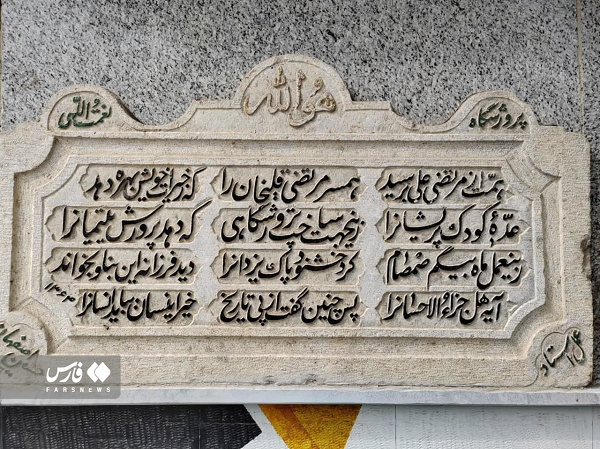 هو الله
پرورشگاه نعمت اللهی
همت از مرتضی علی برسید همسر مرتضی قلیخان را که ز خیرات خویش بهره دهد
عدّهٔ کودک پریشانرا زینجهت ساخت پرورشگاهی که دهد پرورش یتیمانرا
زینعمل ماه بیگم صمصام کرد خشنود پاک یزدانرا دید فرزانه این بنا و بخواند
آیه هل جزاء الاحسانرا پس چنین گفت از پی تاریخ خیر اینسان بباید انسانرا
عمل استاد حسین
فارس
FARSNEWS